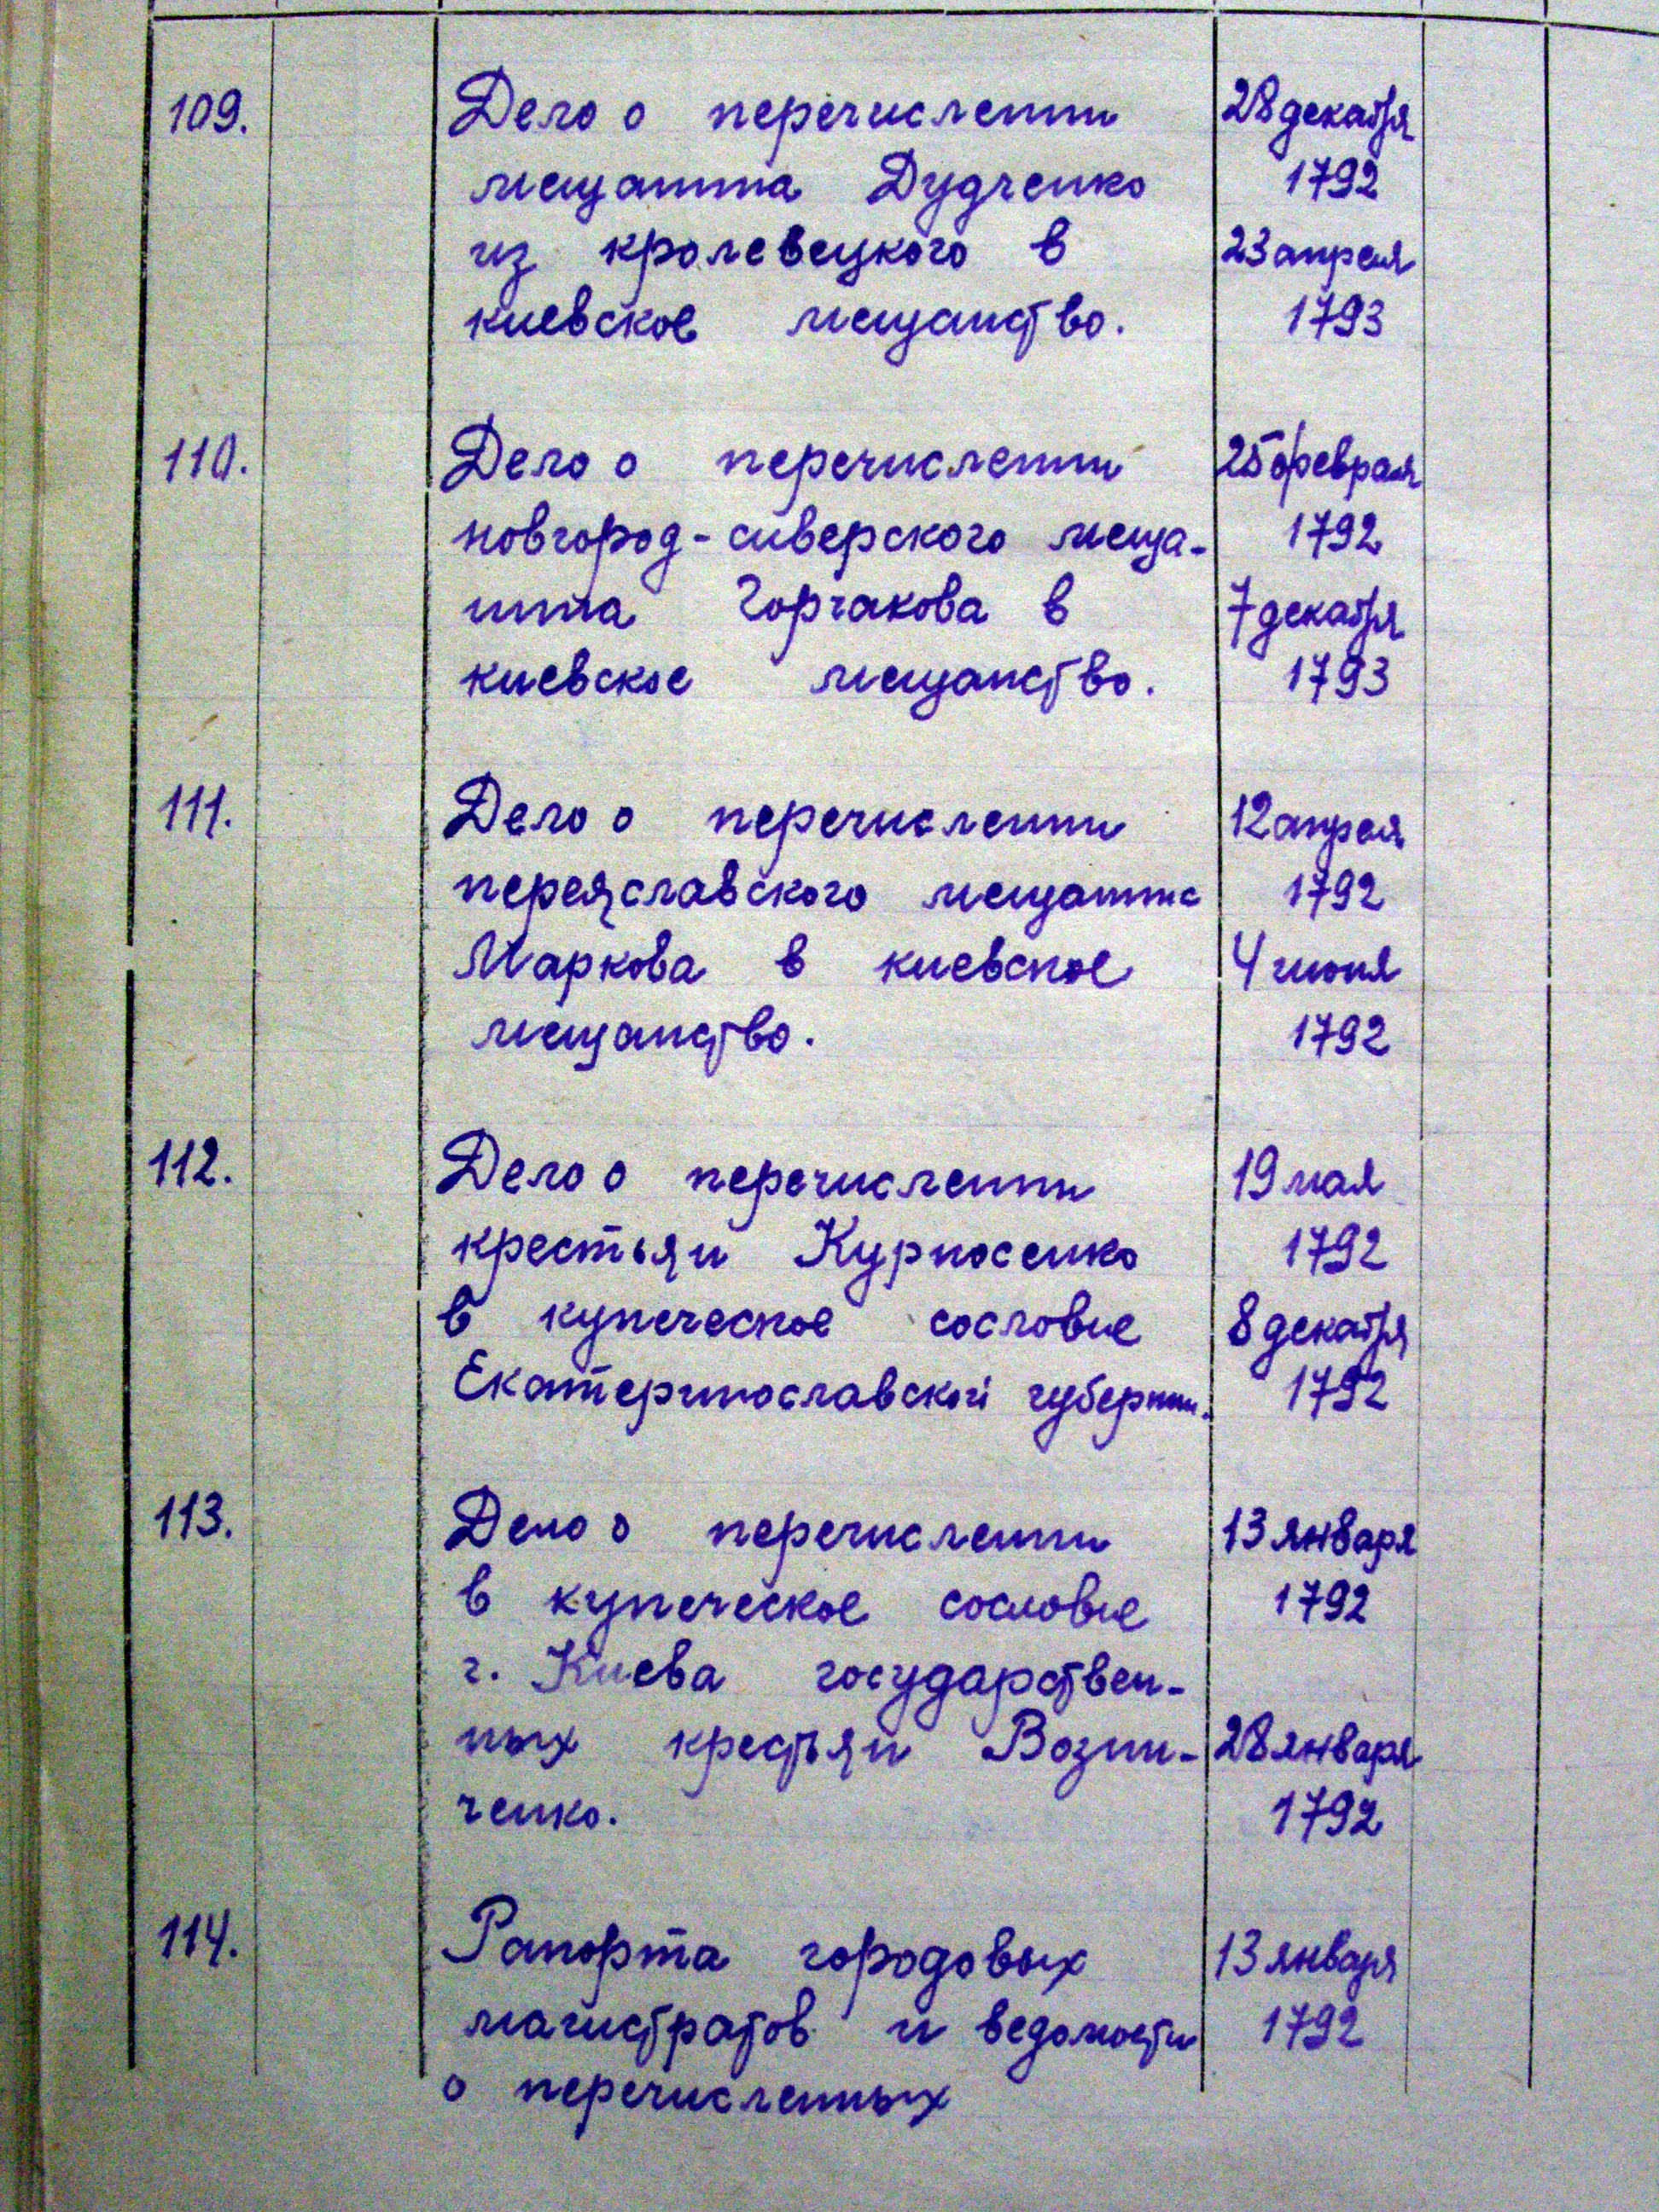 109. Дело о перечислении 28 декабря
мещанина Дудченко 1792
из кролевецкого в 23 апреля
киевское мещанство. 1793
110. Дело о перечислении 25 февраля
новгород-сиверского меща- 1792
нина Горчакова в 7 декабря
киевское мещанство. 1793
111. Дело о перечислении 12 апреля
переяславского мещанина 1792
Маркова в киевское 4 июня
мещанство. 1792
112. Дело о перечислении 19 мая
крестьян Курносенко 1792
в купеческое сословие 8 декабря
Екатеринославской губернии. 1792
113. Дело о перечислении 13 января
в купеческое сословие 1792
г. Киева государствен-
ных крестьян Возни- 28 января
ченко. 1792
114. Рапорта городовых 13 января
магистратов и ведомости 1792
о перечисленных